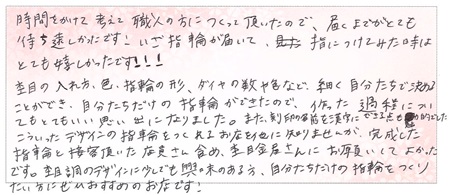 時間をかけて考えて職人の方につくって頂いたので、届くまでがとても
待ち遠しかったです！いざ指輪が届いて、指につけてみた時は
とても嬉しかったです！！！
杢目の入れ方、色、指輪の形、ダイヤの数や色など、細く自分たちで決める
ことができ、自分たちだけの指輪ができたので、作った過程につい
てもとてもいい思い出になりました。また、刻印の名前を漢字にできる点も
こういったデザインの指輪をつくれるお店を他に知りませんが、完成した
指輪と接客頂いた店員さん含め、杢目金屋さんにお願いしてよかった
です。杢目調のデザインに少しでも興味のある方、自分たちだけの指輪をつくり
たい方にぜひおすすめのお店です！